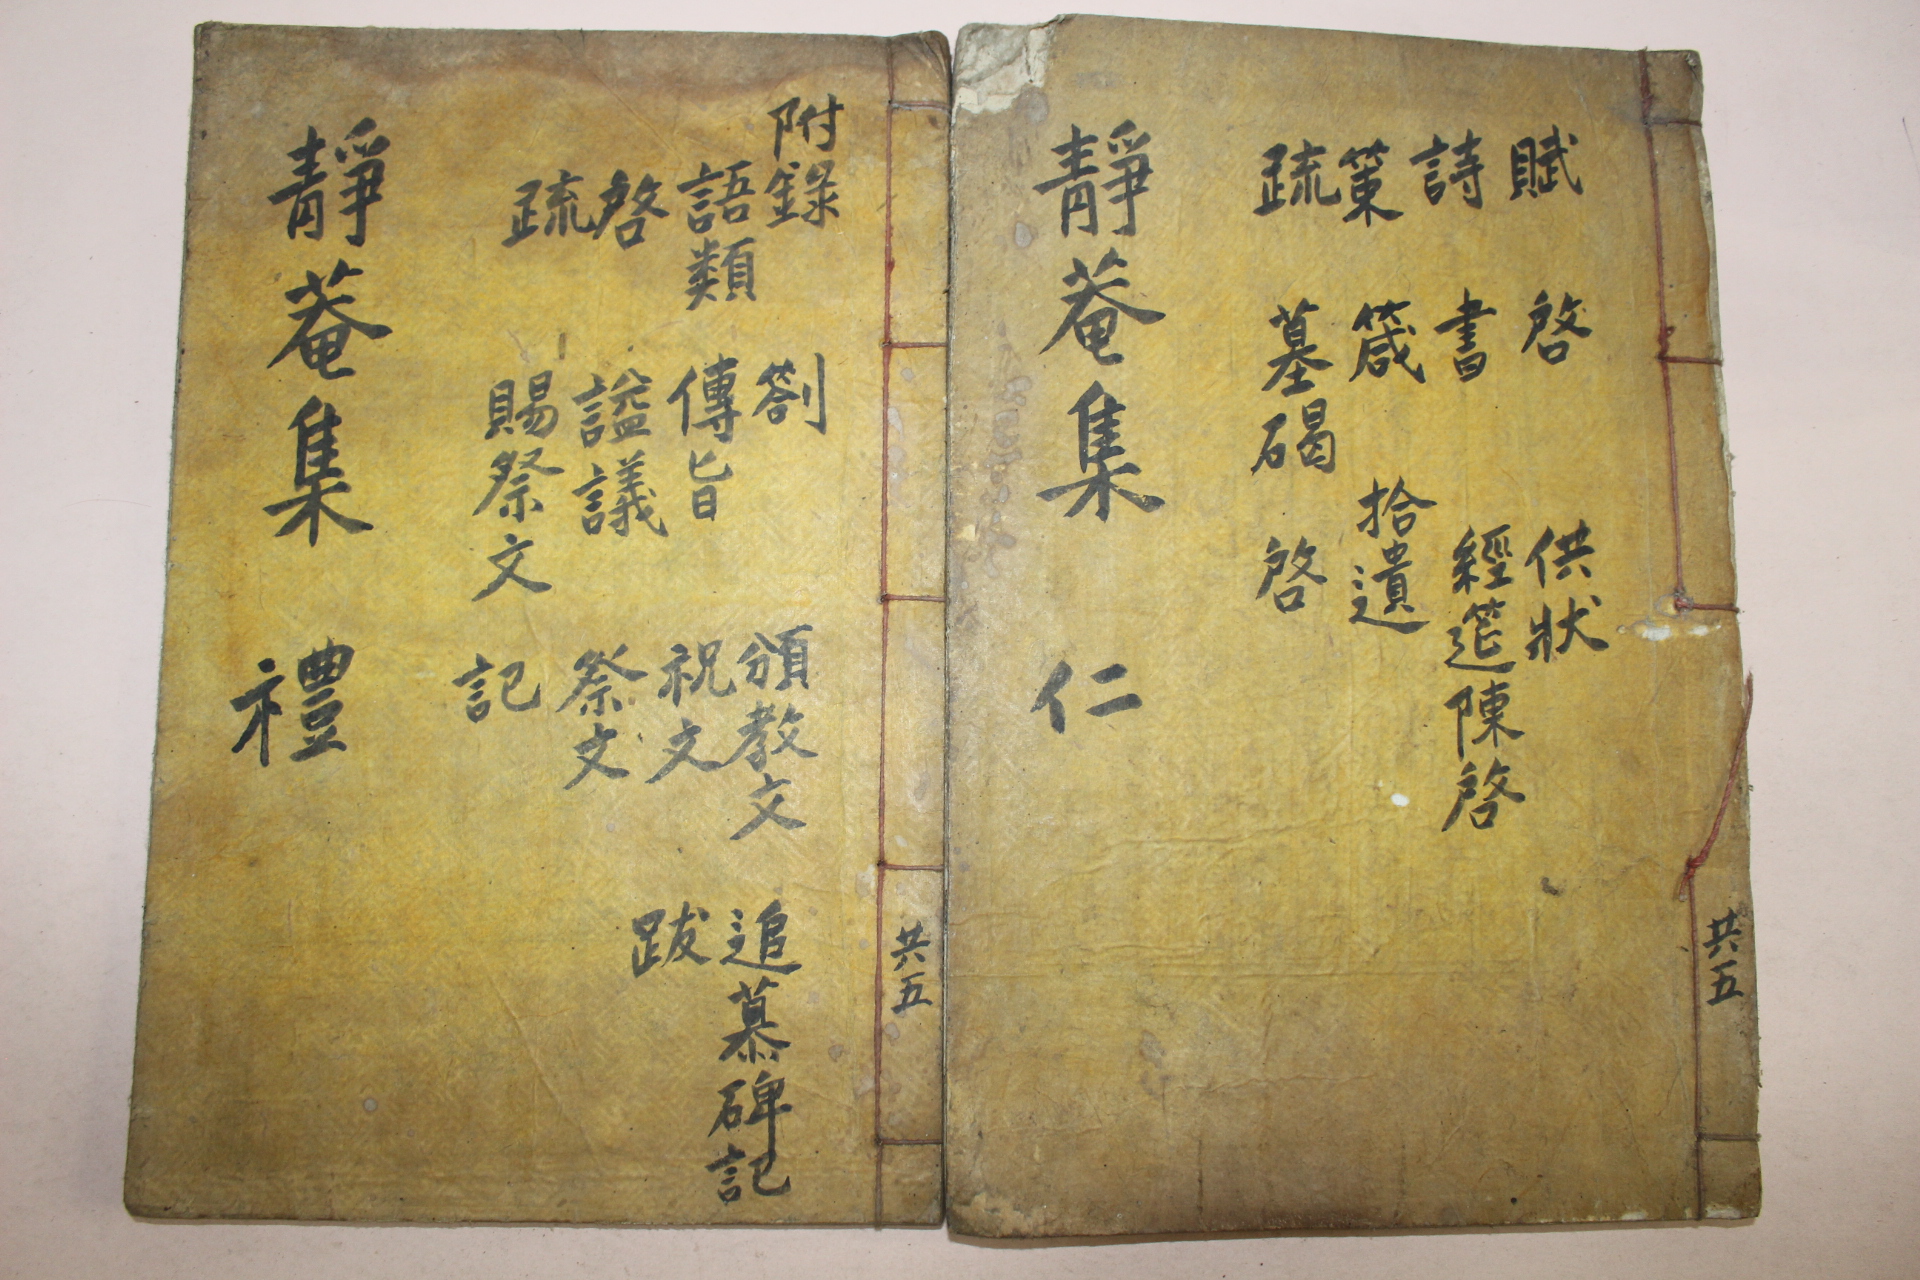 賦 啓 供狀
詩 書 經筵陳啓
策 箴 拾遺
疏 墓碣 啓
靜菴集 仁
共五
附錄 劄 頒教文 追慕碑記
語類 傳旨 祝文 跋
啓 諡議 祭文
疏 賜祭文 記
靜菴集 禮
共五